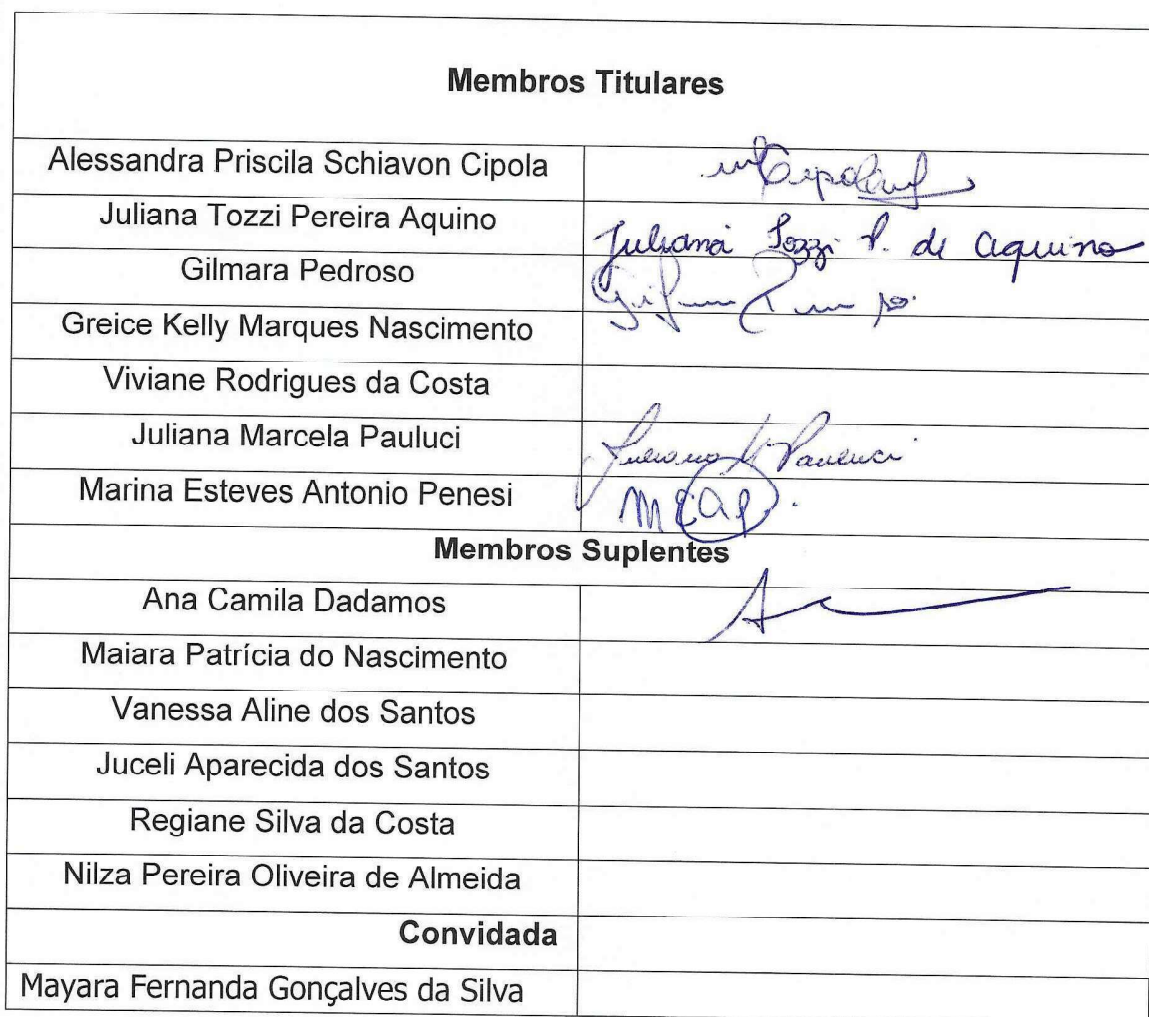 Membros Titulares
Alessandra Priscila Schiavon Cipola
Juliana Tozzi Pereira Aquino Juliana Tozzi P. de Aquino
Gilmara Pedroso
Greice Kelly Marques Nascimento
Viviane Rodrigues da Costa
Juliana Marcela Pauluci Juliana M Pauluci
Marina Esteves Antonio Penesi MEAP.
Membros Suplentes
Ana Camila Dadamos
Maiara Patrícia do Nascimento
Vanessa Aline dos Santos
Juceli Aparecida dos Santos
Regiane Silva da Costa
Nilza Pereira Oliveira de Almeida
Convidada
Mayara Fernanda Gonçalves da Silva